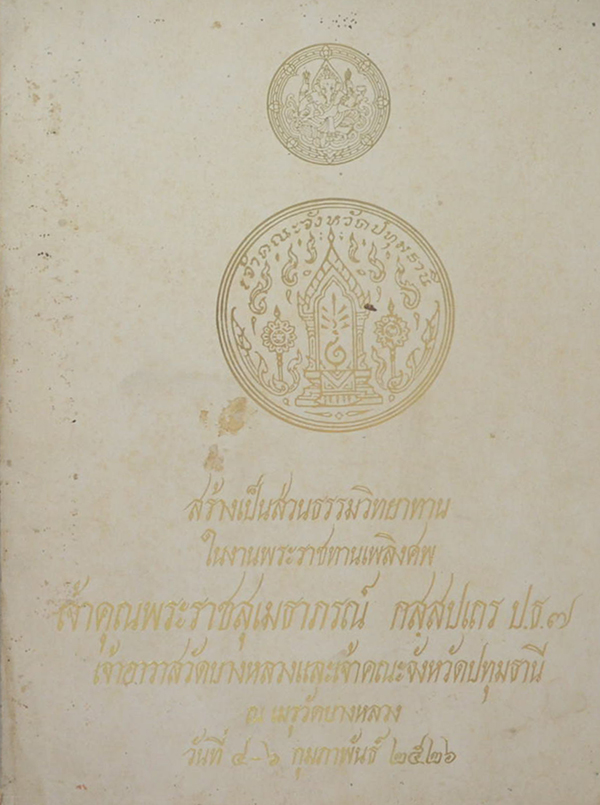 เจ้าคณะจังหวัดปทุมธานี
สร้างเป็นส่วนธรรมวิทยาทาน
ในงานพระราชทานเพลิงศพ
เจ้าคุณพระราชสุเมธาภรณ์ กสฺสปเถร ป.ธ.๗
เจ้าอาวาสวัดบางหลวงและเจ้าคณะจังหวัดปทุมธานี
ณ เมรุวัดบางหลวง
วันที่ ๔-๖ กุมภาพันธ์ ๒๕๒๖